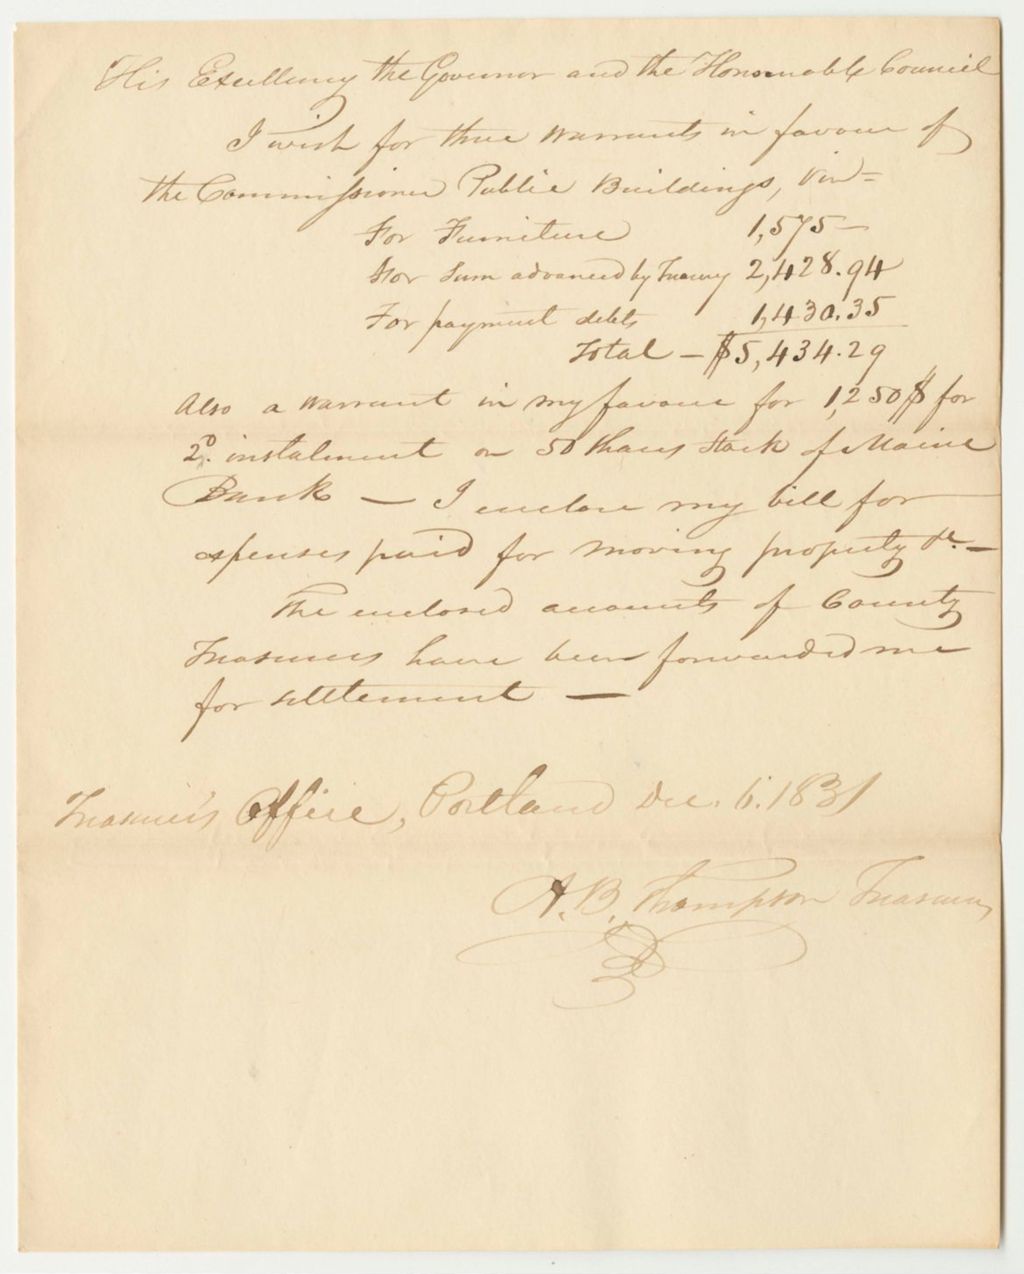 His Excellency the Governor and the Honourable Council
I wish for three warrants in favour of
the Commissioner Public Buildings, viz=
For Furniture 1,575—
For Sum advanced by Treasury 2,428.94
For payment debts 1,430.35
Total — $5,434.29
Also a warrant in my favour for 1,250$ for
2d. instalment on 50 shares Stock of Maine
Bank — I enclose my bill for
expenses paid for moving property &c. —
The enclosed accounts of County
Treasurers have been forwarded me
for settlement —
Treasurer's Office, Portland Dec. 6. 1831
A. B. Thompson Treasurer